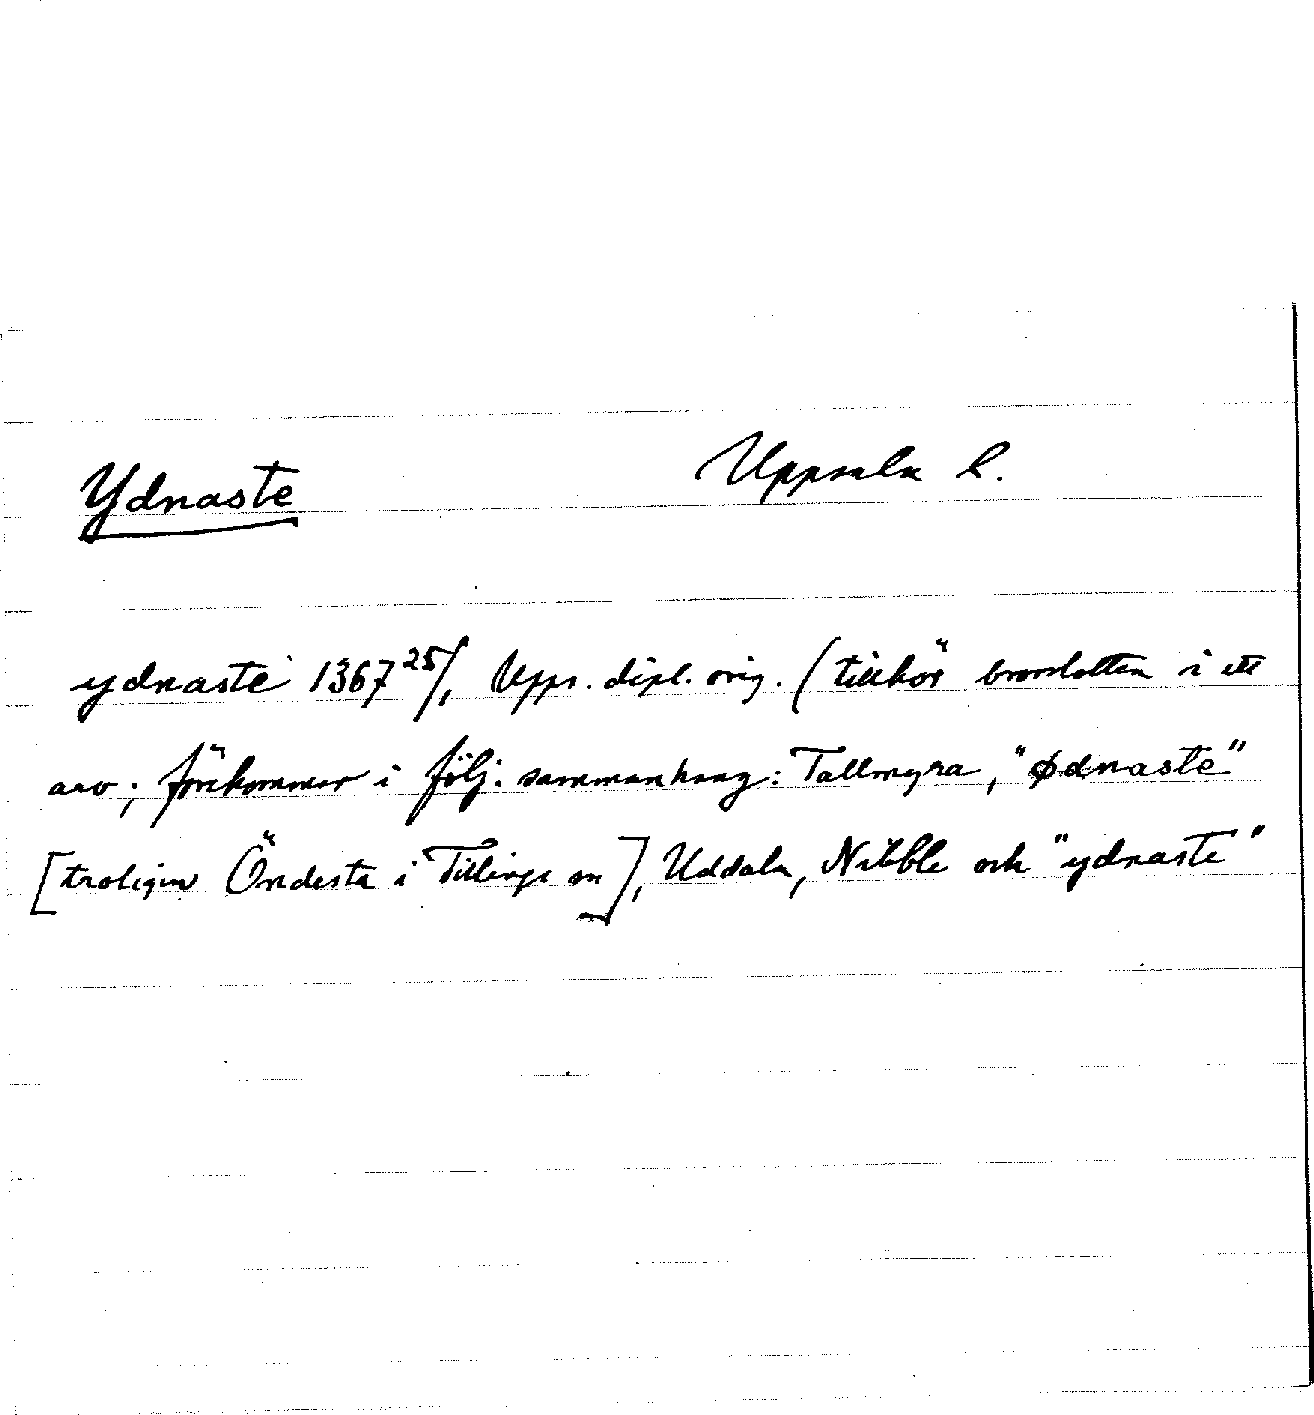 Ydnaste Uppsala l.
ydnaste 1367 25/, Upps. dipl. orig. (tillhör brorslotten i ett
arv; förekommer i följ. sammanhang: Tallmyra, "Ødnaste"
[troligen Öndesta i Tillinge sn], Uddala, Nibble och "ydnaste"